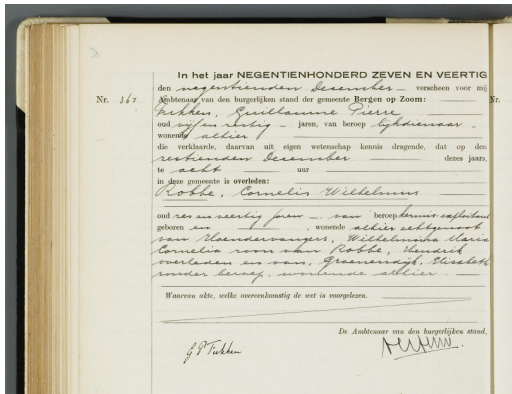 In het jaar NEGENTIENHONDERD ZEVEN EN VEERTIG
den negentienden December verscheen voor mij
Nr. 367 Ambtenaar van den burgerlijken stand der gemeente Bergen op Zoom: Nr.
Fukken, Guillaume Pierre
oud vijf en zestig jaren, van beroep lijkdienaar
wonende alhier
die verklaarde, daarvan uit eigen wetenschap kennis dragende, dat op den
zestienden December dezes jaars,
te acht uur
in deze gemeente is overleden:
Robbe, Cornelis Wilhelmus
oud zes en veertig jaren van beroep kermis-exploitant
geboren en wonende alhier echtgenoot
van Hoendervangers, Wilhelmina Maria
Cornelia zoon van Robbe, Hendrik
overleden en van Groenendijk, Elisabeth
zonder beroep, wonende alhier.
Waarvan akte, welke overeenkomstig de wet is voorgelezen.
De Ambtenaar van den burgerlijken stand,
G P Fukken